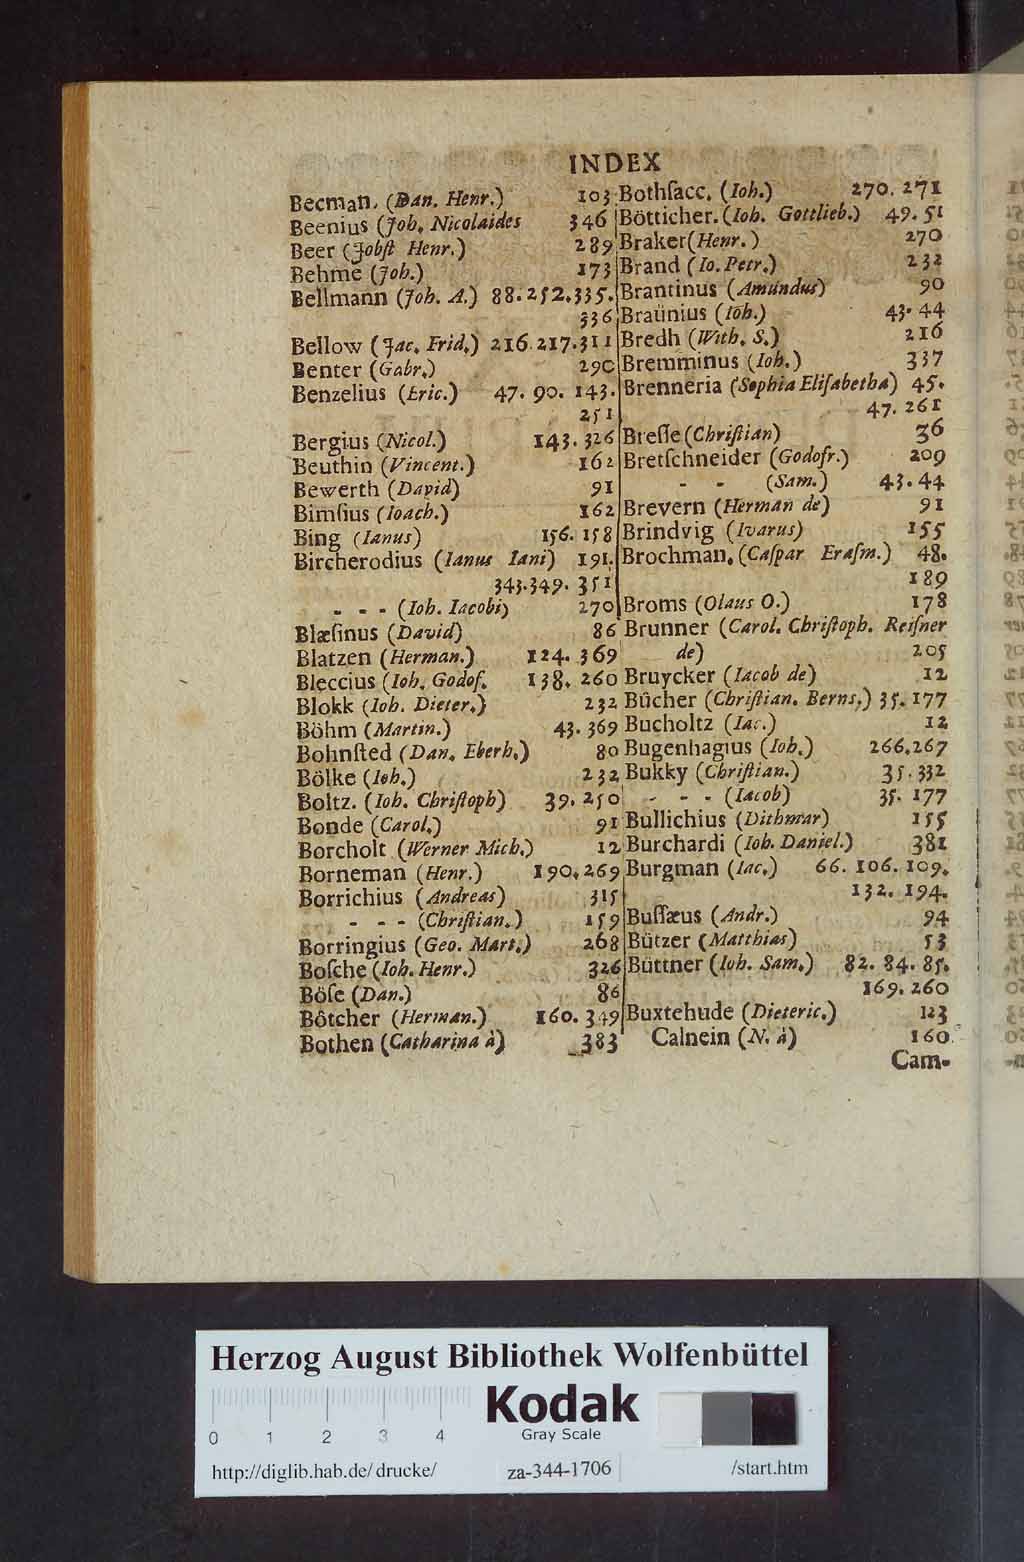 INDEX
Becman. (Dan. Henr.) 103
Beenius (Joh. Nicolaides 346
Beer (Jobſt Henr.) 289
Behme (Joh.) 173
Bellmann (Joh. A.) 88. 252. 335.
336
Bellow (Jac. Frid.) 216. 217. 311
Benter (Gabr.) 290
Benzelius (Eric.) 47. 90. 143.
251
Bergius (Nicol.) 143. 326
Beuthin (Vincent.) 162
Bewerth (David) 91
Bimſius (Ioach.) 162
Bing (Ianus) 156. 158
Bircherodius (Ianus Iani) 191.
343. 349. 351
- - - (Ioh. Iacobi) 270
Blæſinus (David) 86
Blatzen (Herman.) 124. 369
Bleccius (Ioh. Godof. 138. 260
Blokk (Ioh. Dieter.) 232
Böhm (Martin.) 43. 369
Bohnſted (Dan. Eberh.) 80
Bölke (Ioh.) 232
Boltz. (Ioh. Chriſtoph) 39. 250
Bonde (Carol.) 91
Borcholt (Werner Mich.) 12
Borneman (Henr.) 190. 269
Borrichius (Andreas) 315
- - - (Chriſtian.) 159
Borringius (Geo. Mart.) 268
Boſche (Ioh. Henr.) 326
Böſe (Dan.) 86
Bötcher (Herman.) 160. 349
Bothen (Catharina à) 383
Bothſacc. (Ioh.) 270. 271
Bötticher. (Ioh. Gottlieb.) 49. 51
Braker (Henr.) 270
Brand (Io. Petr.) 232
Brantinus (Amundus) 90
Braünius (Ioh.) 43. 44
Bredh (With. S.) 216
Bremminus (Ioh.) 337
Brenneria (Sophia Eliſabetha) 45.
47. 261
Breſſe (Chriſtian) 36
Bretſchneider (Godofr.) 209
- - (Sam.) 43. 44
Brevern (Herman de) 91
Brindvig (Ivarus) 155
Brochman. (Caſpar Eraſm.) 48.
189
Broms (Olaus O.) 178
Brunner (Carol. Chriſtoph. Reiſner
de) 205
Bruycker (Iacob de) 12
Bücher (Chriſtian. Berns.) 35. 177
Bucholtz (Iac.) 12
Bugenhagius (Ioh.) 266. 267
Bukky (Chriſtian.) 35. 332
- - - (Iacob) 35. 177
Bullichius (Dithmar) 155
Burchardi (Ioh. Daniel.) 381
Burgman (Iac.) 66. 106. 109.
132. 194.
Buſſæus (Andr.) 94
Bützer (Matthias) 53
Büttner (Ioh. Sam.) 82. 84. 85.
169. 260
Buxtehude (Dieteric.) 123
Calnein (N. à) 160
Cam-
Herzog August Bibliothek Wolfenbüttel
Kodak
Gray Scale
0 1 2 3 4
http://diglib.hab.de/drucke/ za-344-1706 /start.htm